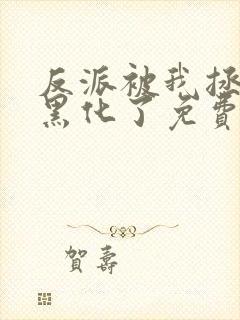 反派被我拯
黑化了免費
賀壽